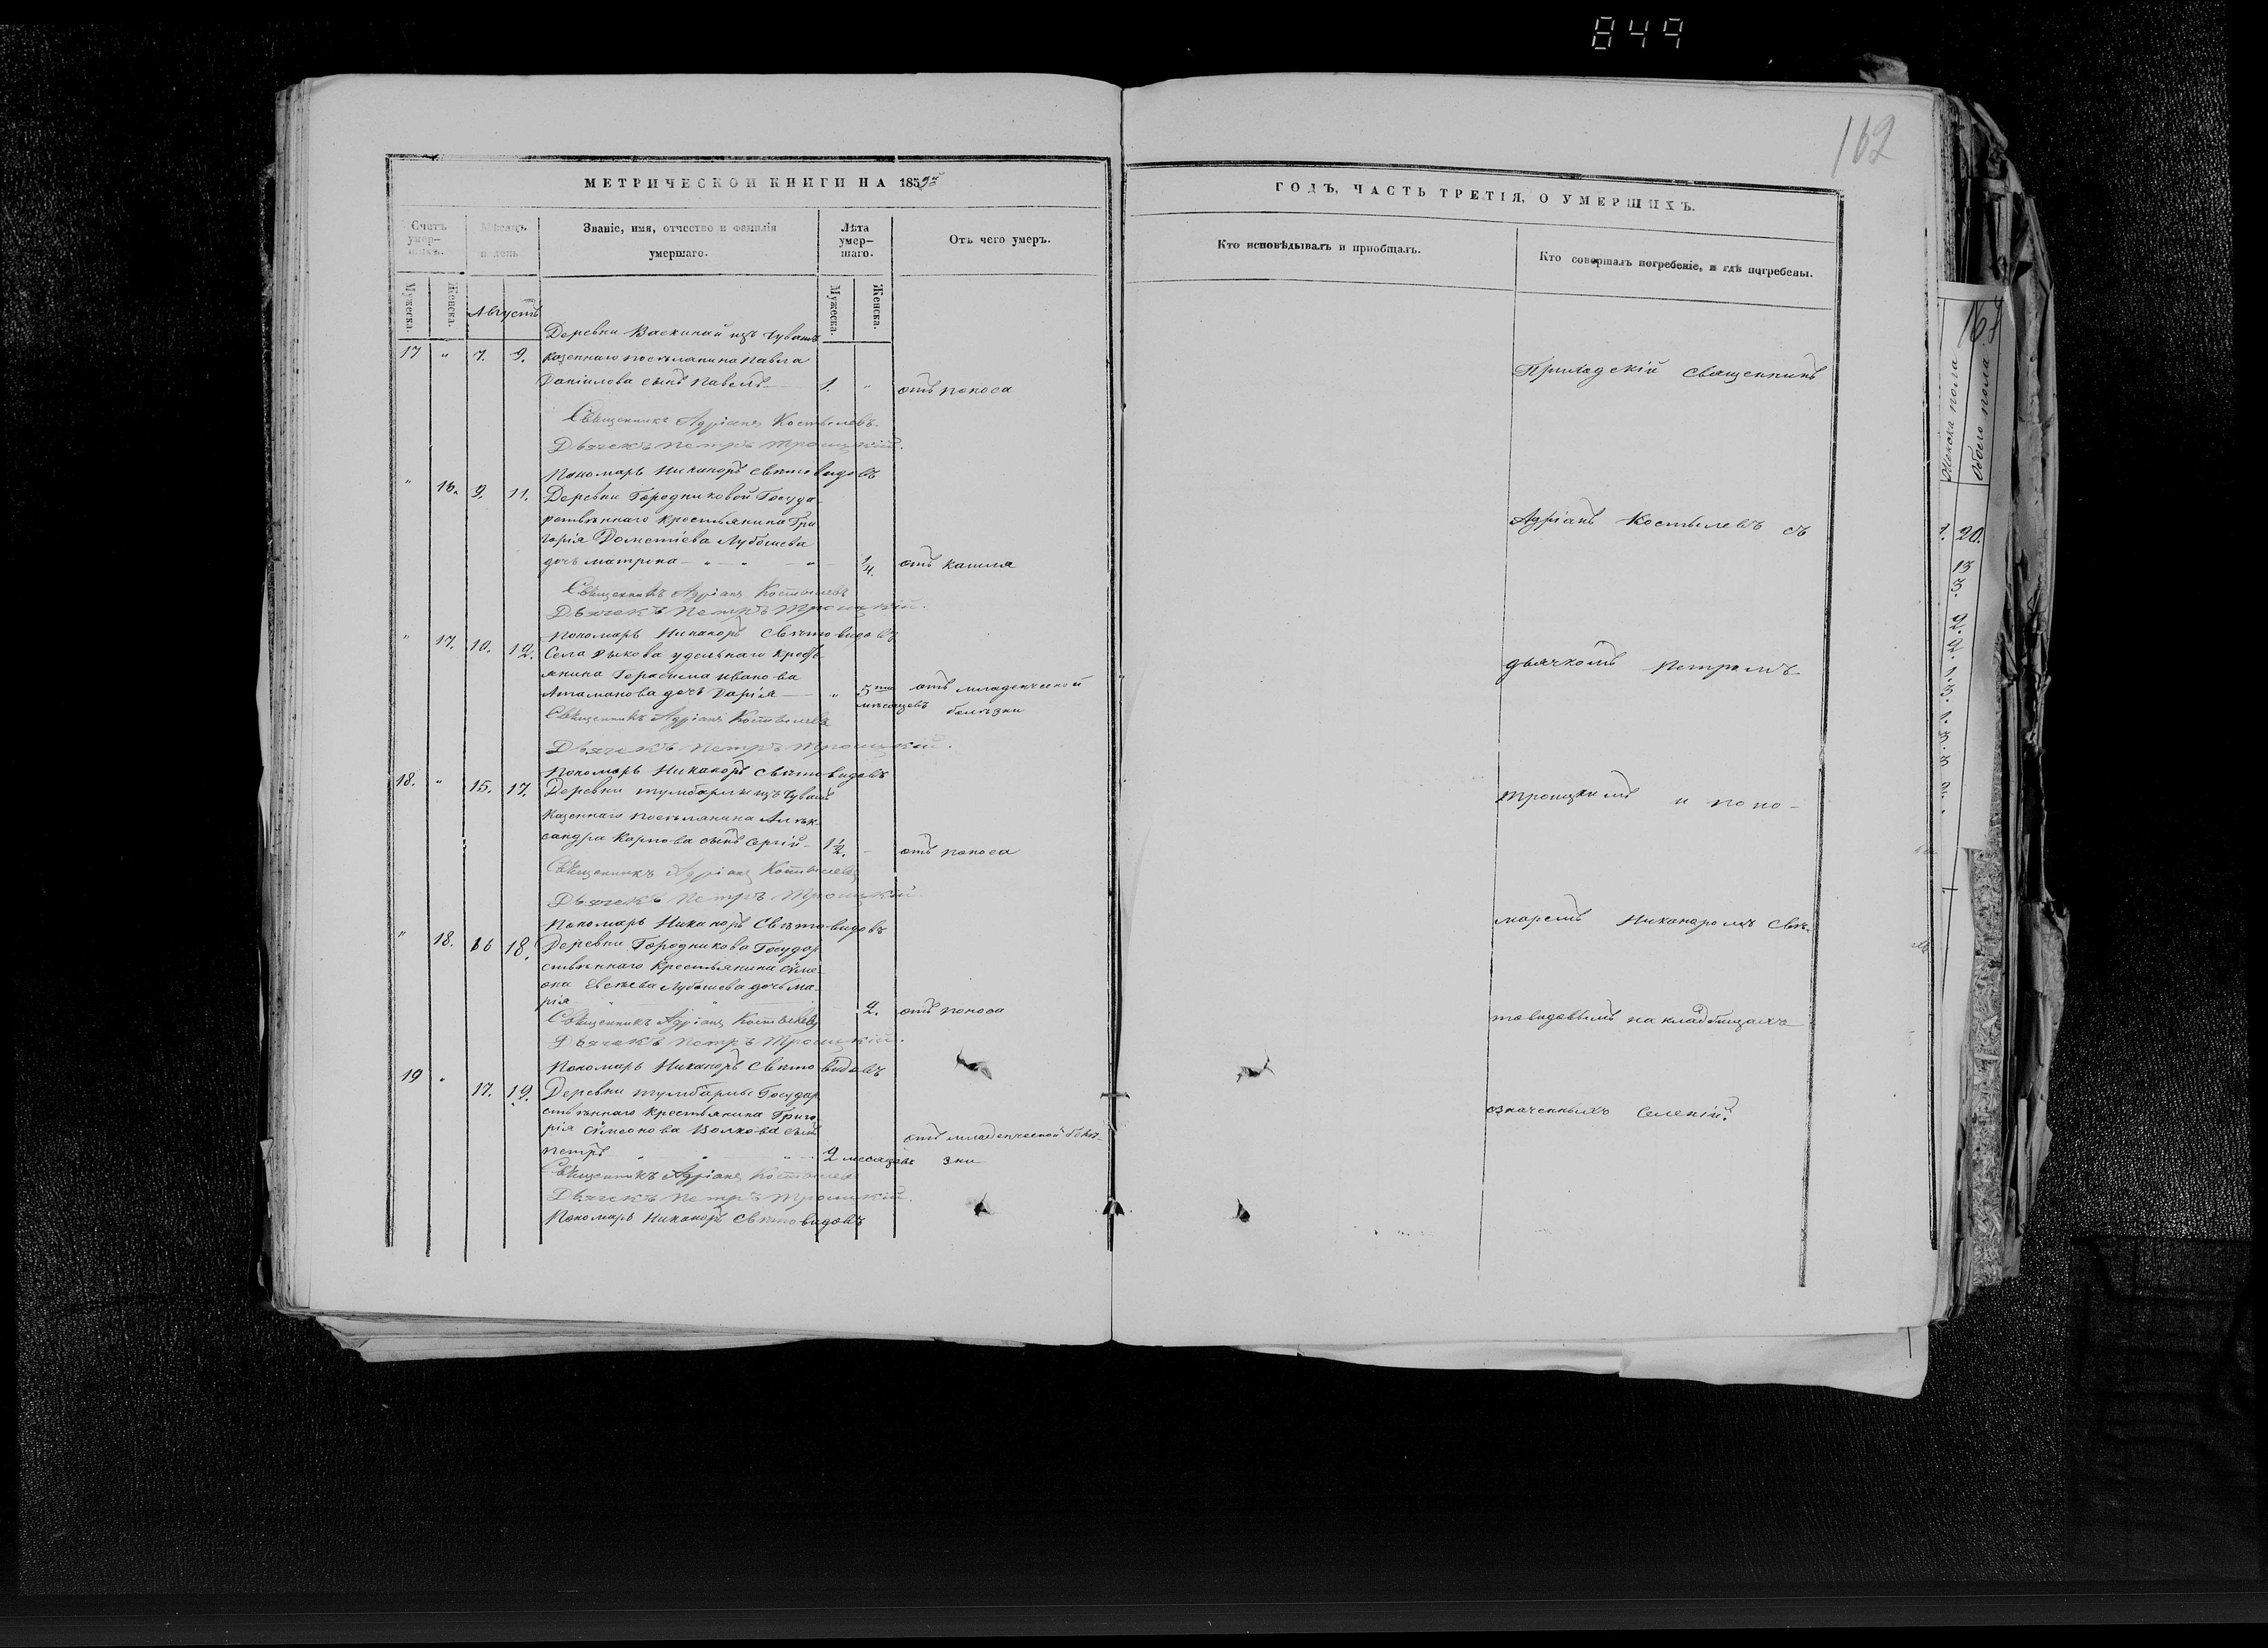 849
162
МЕТРИЧЕСКОЙ КНИГИ НА 185
ГОДЪ, ЧАСТЬ ТРЕТІЯ, О УМЕРШИХЪ.
Счетъ умер-шихъ.
Мѣсяцъ и день
Званіе, имя, отчество и фамилія умершаго.
Лѣта умер-шаго.
Отъ чего умеръ.
Кто исповѣдывалъ и пріобщалъ.
Кто совершалъ погребеніе, и гдѣ погребены.
Мужеска.
Женска.
Августъ
Мужеска.
Женска.
Деревни Васкиной изъ Чувашъ
17 " 7. 9. казеннаго поселянина Павла
Даніилова сынъ Павелъ 1. " отъ поноса
Священникъ Адріанъ Костылевъ
Дьячекъ Петръ Троицкій.
Пономарь Никаноръ Свѣтовидовъ
" 16. 9. 11. Деревни Городниковой Госуда
рственнаго крестьянина Гри
горія Дометіева Лубашева
дочь Матрона 1/4. отъ кашля
Священникъ Адріанъ Костылевъ
Дьячекъ Петръ Троицкій.
Пономарь Никаноръ Свѣтовидовъ
" 17. 10. 12. Села удѣльнаго кресть
янина Герасима Иванова
Атаманова дочь Дарія " 5 мѣсяцевъ отъ младенческой
болѣзни
Священникъ Адріанъ Костылевъ
Дьячекъ Петръ Троицкій.
Пономарь Никаноръ Свѣтовидовъ
18. " 15. 17. Деревни Тумбарли изъ Чувашъ
казеннаго поселянина Алек
сандра Карпова сынъ Сергій 1 1/2. отъ поноса
Священникъ Адріанъ Костылевъ
Дьячекъ Петръ Троицкій
Пономарь Никаноръ Свѣтовидовъ
" 18. 16 18. Деревни Городникова Государ
ственнаго крестьянина Симе
она Лубашева дочь Ма
рія 2. отъ поноса
Священникъ Адріанъ Костылевъ
Дьячекъ Петръ Троицкій.
Пономарь Никаноръ Свѣтовидовъ
19 " 17. 19. Деревни Тумбарлы Государ
ственнаго крестьянина Григо
рія Симеонова Волкова сынъ
Петръ 2 месяцевъ отъ младенческой болѣ-
зни
Священникъ Адріанъ Костылевъ
Дьячекъ Петръ Троицкій.
Пономарь Никаноръ Свѣтовидовъ
Приходскій священникъ
Адріанъ Костылевъ съ
дьячкомъ Петромъ
Троицкимъ и поно-
маремъ Никаноромъ Свѣ-
товидовымъ на кладбищахъ
означенныхъ селеній.
Женска пола
Обоего пола
20.
13